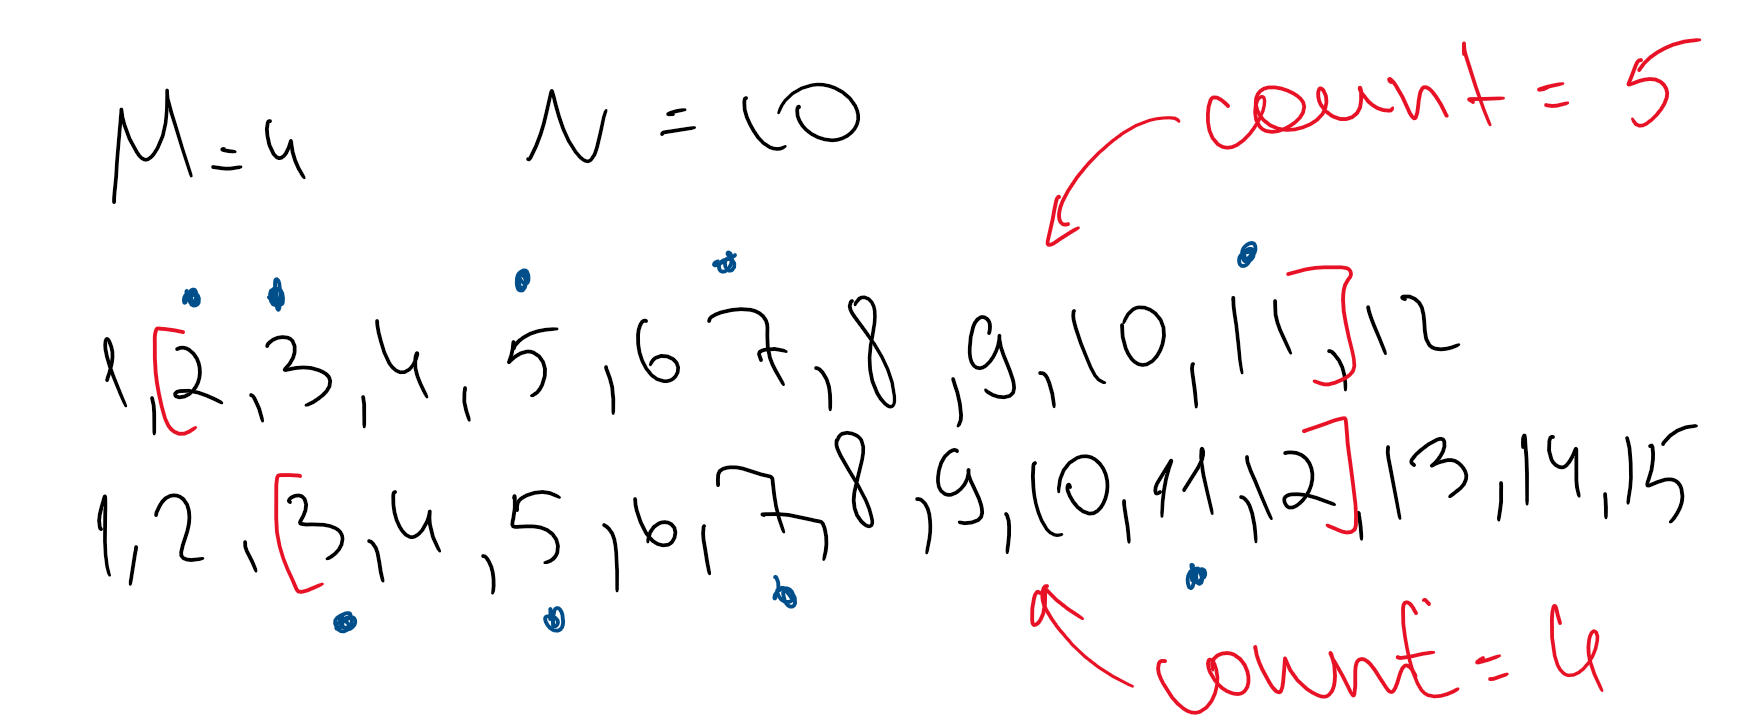 M=4 N=10
count=5
1,[2,3,4,5,6 7,8,9,10,11,]12
1,2,[3,4,5,6,7,8,9,10,11,12],13,14,15
count=4